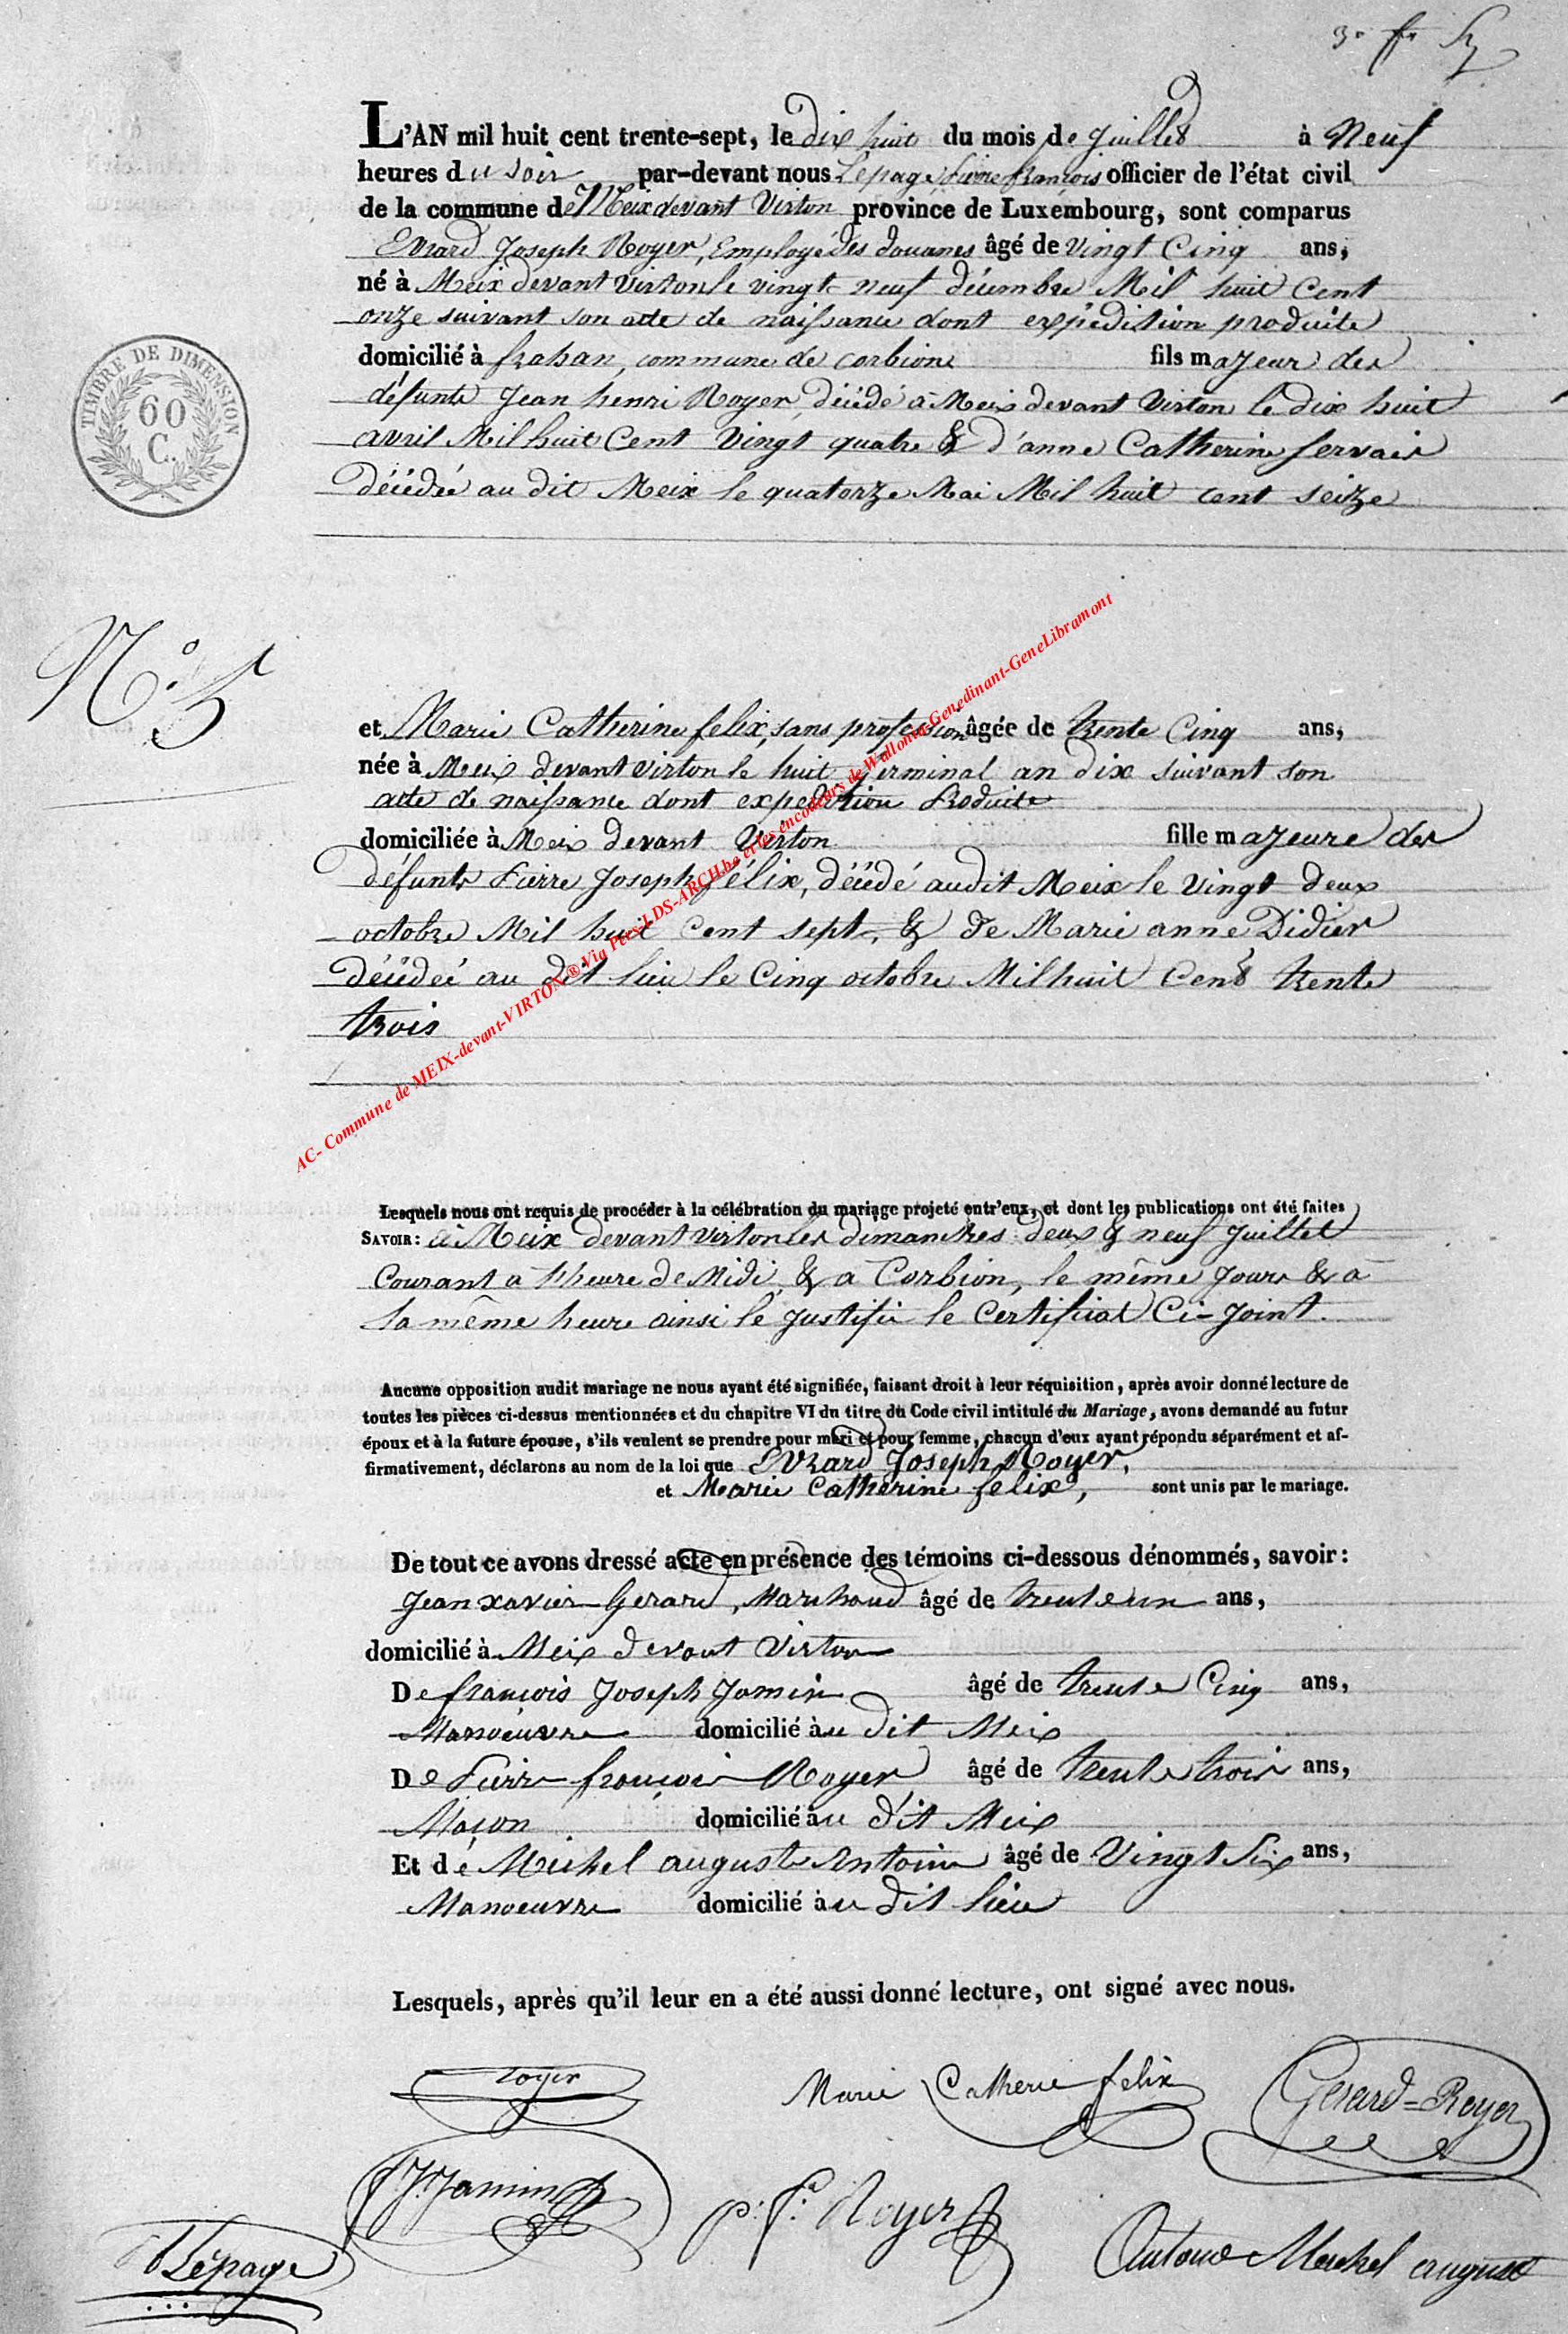 L'AN mil huit cent trente-sept, le dix huit du mois de Juillet à Neuf
heures du soir par-devant nous Lépage, Pierre françois officier de l'état civil
de la commune de Meix devant Virton province de Luxembourg, sont comparus
Evrard Joseph Royer, Employé des douanes âgé de vingt Cinq ans,
né à Meix devant Virton le vingt neuf décembre Mil huit Cent
onze suivant son acte de naissance dont expédition produite
domicilié à frahan, commune de corbion fils majeur des
TIMBRE DE DIMENSION
60
C.
défunts Jean henri Royer, décédé à Meix devant Virton le dix huit
avril Mil huit Cent Vingt quatre & d'anne Catherine Servais
décédée au dit Meix le quatorze Mai Mil huit cent seize
N° 5
et Marie Catherine felix, sans profession âgée de trente Cinq ans,
née à Meix devant Virton le huit germinal an dix suivant son
acte de naissance dont expedition Produite
domiciliée à Meix devant Virton fille majeure des
défunts Pierre Joseph félix, décédé audit Meix le Vingt deux
octobre Mil huit Cent sept, & de Marie anne Didier
décédeé au dit lieu le Cinq octobre Mil huit Cent trente
trois
AC- Commune de MEIX-devant-VIRTON® Via Pces-LDS-ARCH.be et les encodeurs de Wallonia-Genedinant-GeneLibramont
Lesquels nous ont requis de procéder à la célébration du mariage projeté entr'eux, et dont les publications ont été faites
SAVOIR: à Meix devant Virton les dimanches deux & neuf Juillet
Courant à l'heure de Midi, & a Corbion, le même Jours & à
la même heure ainsi le Justifie le Certificat Ci-Joint.
Aucune opposition audit mariage ne nous ayant été signifiée, faisant droit à leur réquisition, après avoir donné lecture de
toutes les pièces ci-dessus mentionnées et du chapitre VI du titre du Code civil intitulé du Mariage, avons demandé au futur
époux et à la future épouse, s'ils veulent se prendre pour mari et pour femme, chacun d'eux ayant répondu séparément et af-
firmativement, déclarons au nom de la loi que Evrard Joseph Royer,
et Marie Catherine felix, sont unis par le mariage.
De tout ce avons dressé acte en présence des témoins ci-dessous dénommés, savoir:
Jean xavier Gerard, Marchand âgé de trente un ans,
domicilié à Meix devant Virton
De françois Joseph Jamin âgé de trente Cinq ans,
Manoeuvre domicilié au dit Meix
De Pierre françois Royer âgé de trente trois ans,
Maçon domicilié au dit Meix
Et de Michel auguste Antoine âgé de Vingt Six ans,
Manoeuvre domicilié au dit lieu
Lesquels, après qu'il leur en a été aussi donné lecture, ont signé avec nous.
royer Marie Catherie felix Gerard-Royer
f J Jamin p. f. Royer
Lepage Antoine Michel august